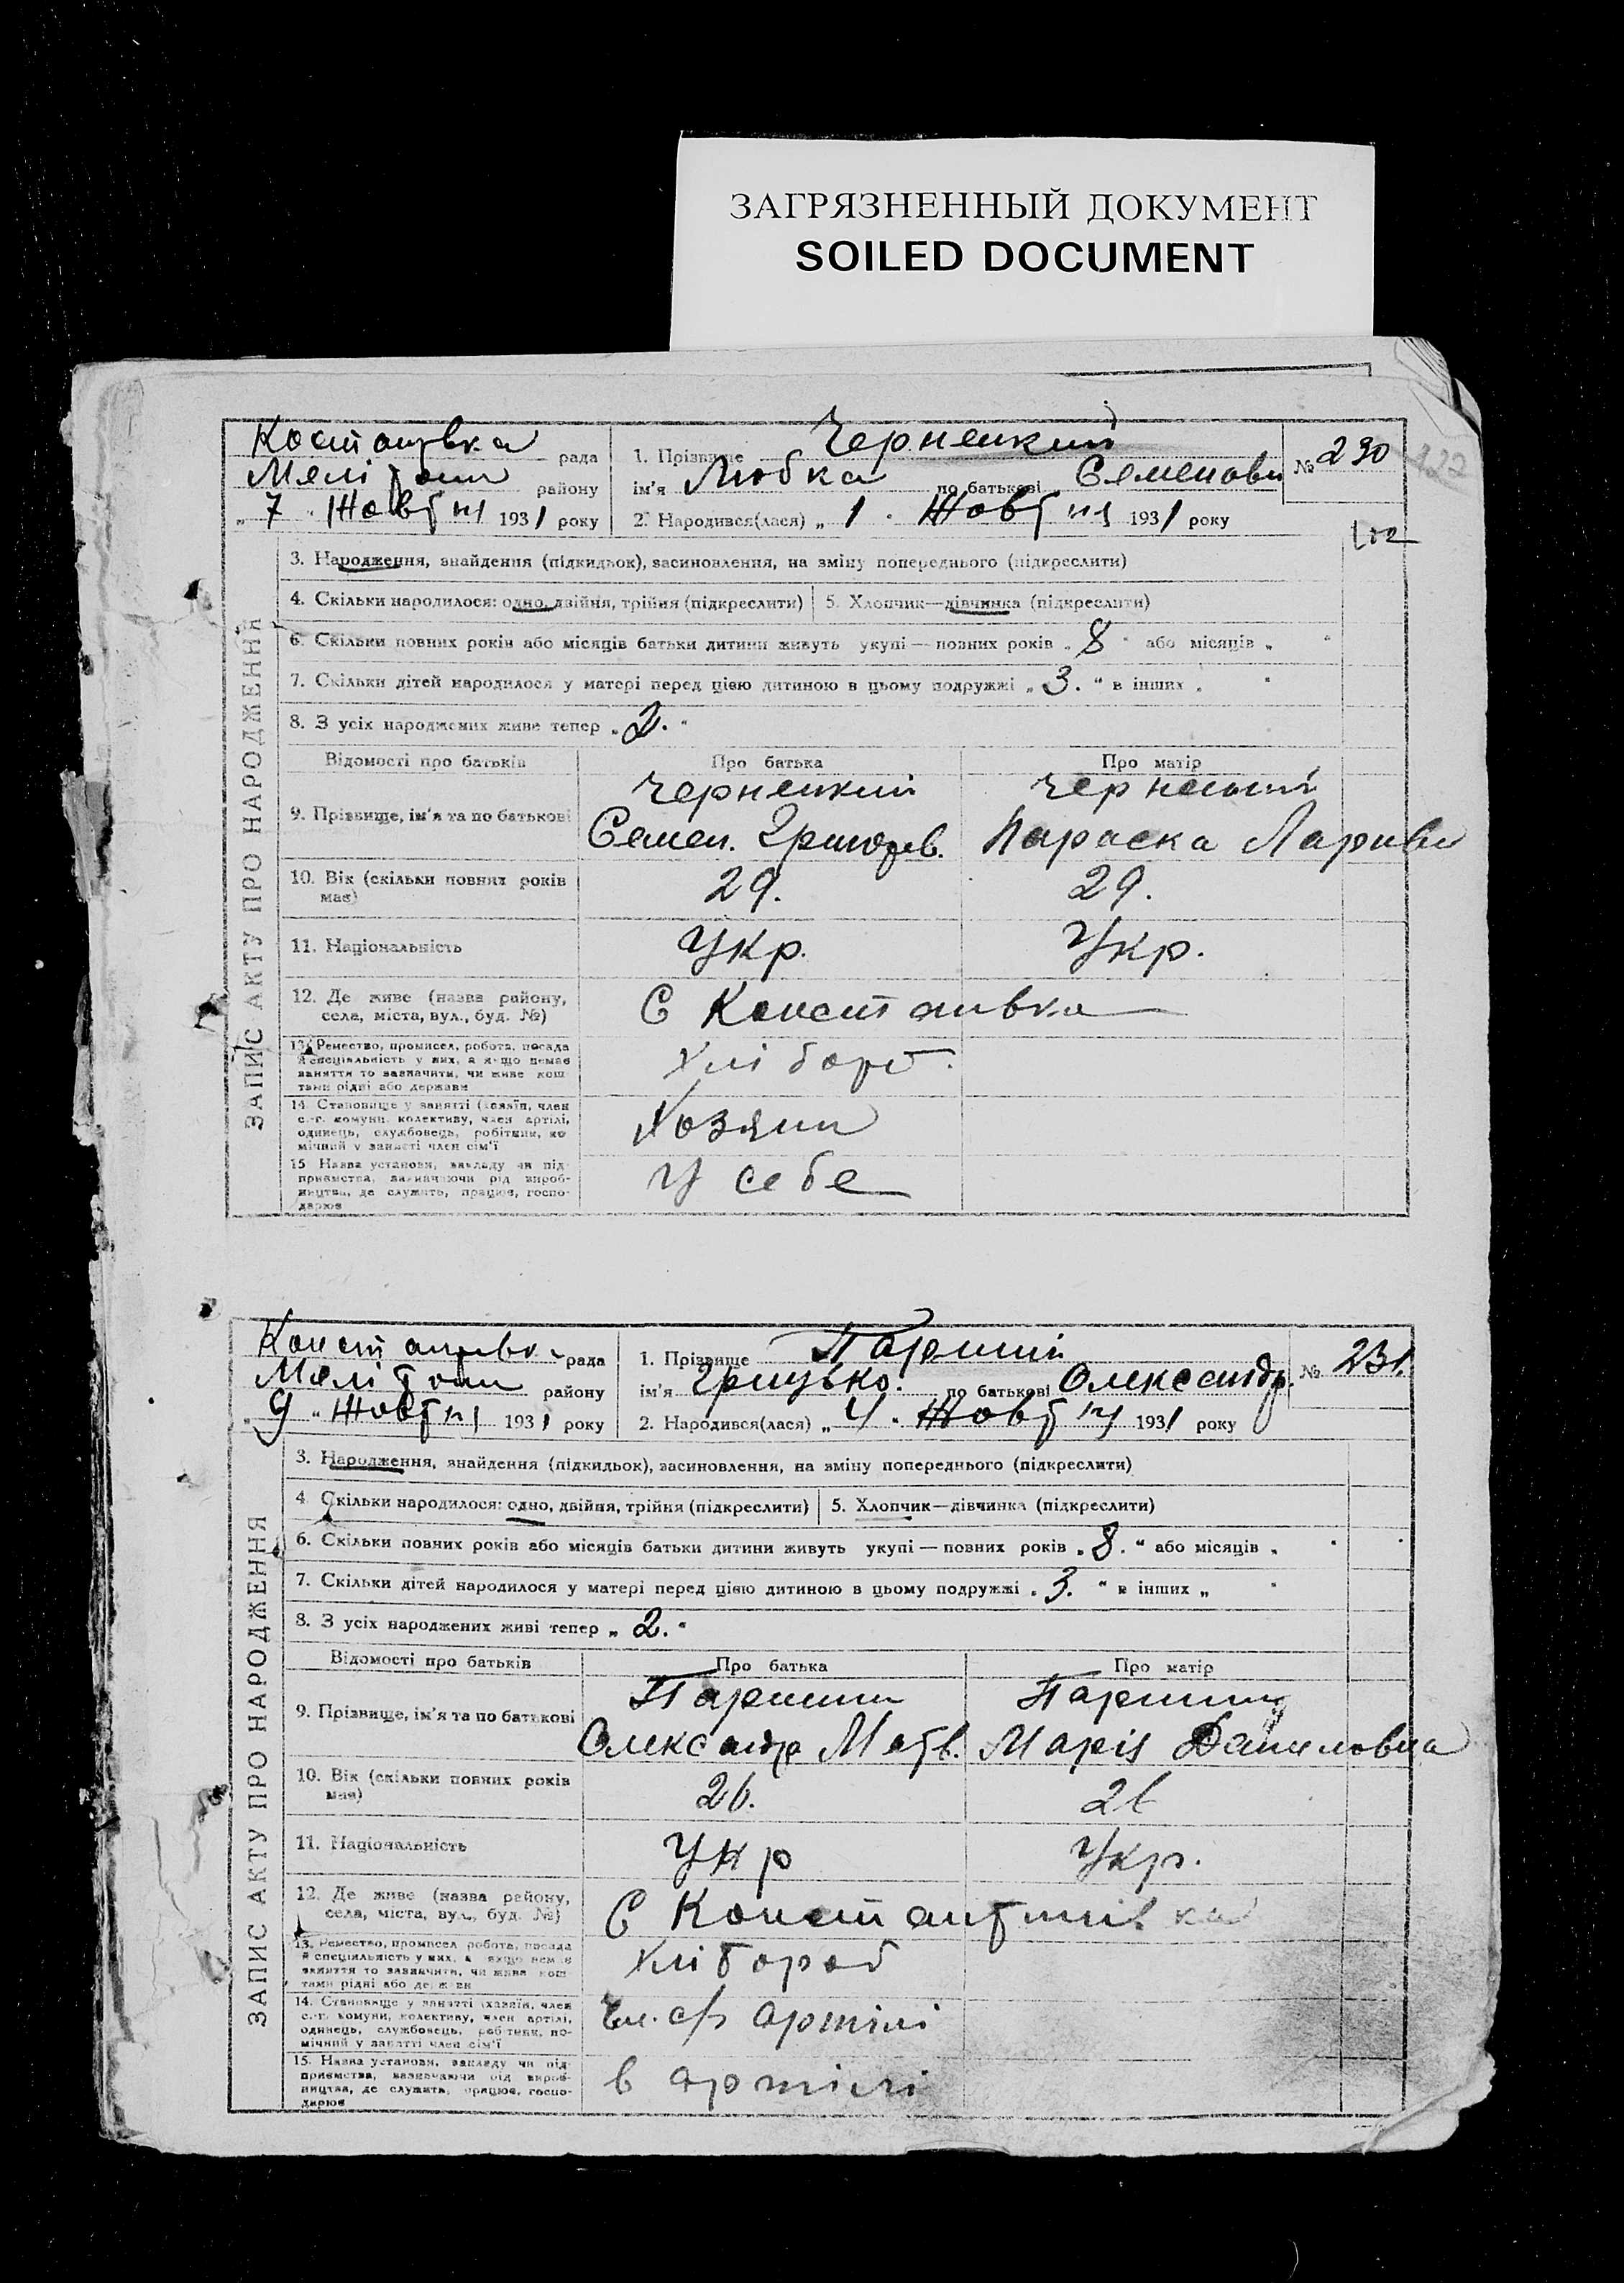 ЗАГРЯЗНЕННЫЙ ДОКУМЕНТ
SOILED DOCUMENT
рада
району
„ 7 " Жовтня 1931 року
1. Прізвище Чернецкий
ім'я Любка по батькові Семеновн
2. Народився(лася) „ 1 " Жовтня 1931 року
№ 230
122
ЗАПИС АКТУ ПРО НАРОДЖЕННЯ
3. Народження, знайдення (підкидьок), засиновлення, на зміну попереднього (підкреслити)
4. Скільки народилося: одно, двійня, трійня (підкреслити)
5. Хлопчик—дівчинка (підкреслити)
6. Скільки повних років або місяців батьки дитини живуть укупі — повних років „ 8 " або місяців „ "
7. Скільки дітей народилося у матері перед цією дитиною в цьому подружжі „ 3. " в інших „ "
8. З усіх народжених живе тепер „ 2. "
Відомості про батьків
Про батька
Про матір
9. Прізвище, ім'я та по батькові
Чернецкий
Семен. Григорев.
Параска
10. Вік (скільки повних років має)
29.
29.
11. Національність
Укр.
Укр.
12. Де живе (назва району, села, міста, вул., буд. №)
С
13. Ремество, промисел, робота, посада й спеціяльність у них, а якщо немає заняття то зазначити, чи живе коштами рідні або держави
Хлібороб.
14. Становище у занятті (хазяїн, член с.-г. комуни, колективу, член артілі, одинець, службовець, робітник, помічний у занятті член сім'ї
Хозяин
15 Назва установи, закладу чи підприємства, зазначаючи рід виробництва, де служить, працює, господарює
У себе
рада
району
„ 9 " Жовтня 1931 року
1. Прізвище
ім'я Грицько. по батькові Олександр.
2. Народився(лася) „ 4 " Жовтня 1931 року
№ 231.
ЗАПИС АКТУ ПРО НАРОДЖЕННЯ
3. Народження, знайдення (підкидьок), засиновлення, на зміну попереднього (підкреслити)
4. Скільки народилося: одно, двійня, трійня (підкреслити)
5. Хлопчик—дівчинка (підкреслити)
6. Скільки повних років або місяців батьки дитини живуть укупі — повних років „ 8. " або місяців „ "
7. Скільки дітей народилося у матері перед цією дитиною в цьому подружжі „ 3. " в інших „ "
8. З усіх народжених живі тепер „ 2. "
Відомості про батьків
Про батька
Про матір
9. Прізвище, ім'я та по батькові
Олександр Матв.
Марія Даниловна
10. Вік (скільки повних років має)
26.
26
11. Національність
Укр
Укр.
12. Де живе (назва району, села, міста, вул., буд. №)
С Константинівка
13. Ремество, промисел робота, посада й спеціяльність у них, а якщо немає заняття то зазначити, чи живе коштами рідні або держави
Хлібороб
14. Становище у занятті (хазяїн, член с.-г. комуни, колективу, член артілі, одинець, службовець, робітник, помічний у занятті член сім'ї
Чл. с/г артілі
15. Назва установи, закладу чи підприємства, зазначаючи рід виробництва, де служить, працює, господарює
в артілі